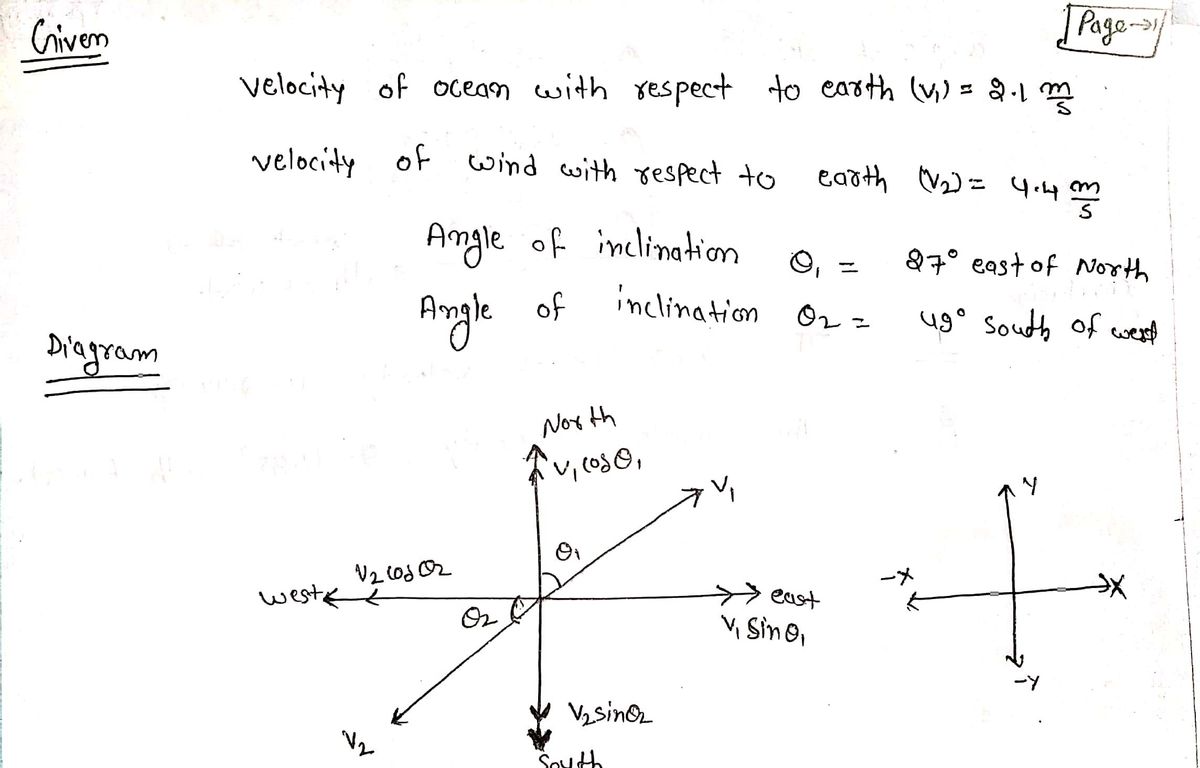 Given
Page → 1
velocity of ocean with respect to earth (V₁) = 2.1 m/s
velocity of wind with respect to earth (V₂) = 4.4 m/s
Angle of inclination θ₁ = 27° east of North
Angle of inclination θ₂ = 49° south of west
Diagram
North
V₁ cosθ₁
V₁
Y
θ₁
V₂ cosθ₂
-X
X
west
east
θ₂
V₁ Sinθ₁
-Y
V₂ sinθ₂
V₂
South